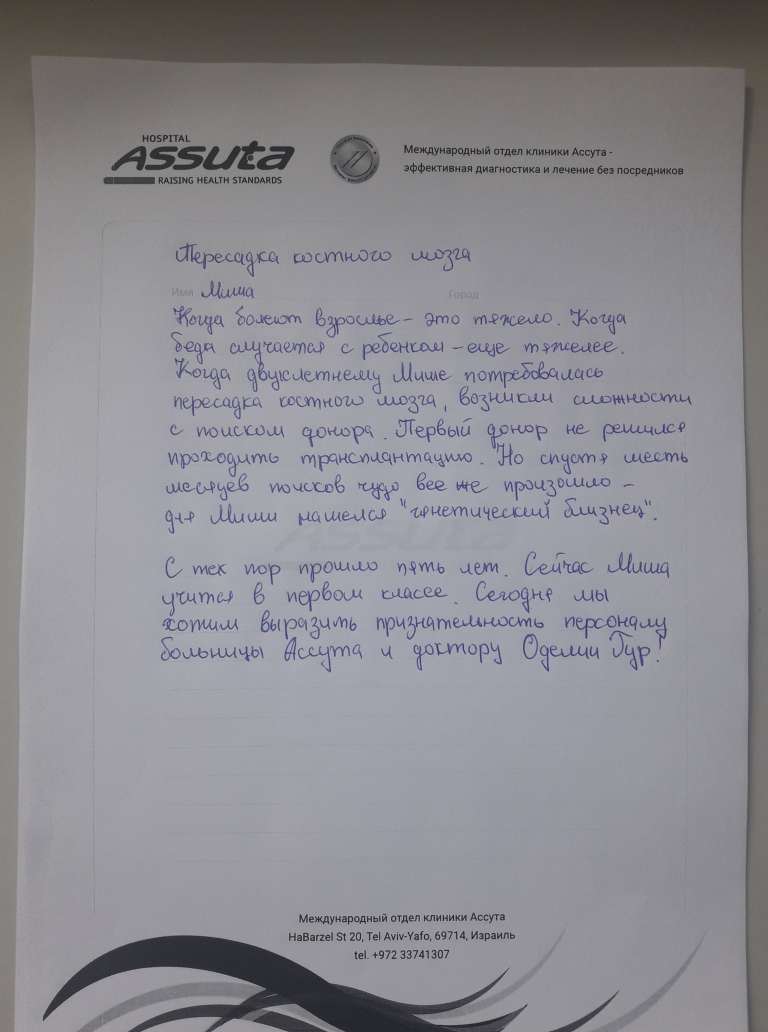 HOSPITAL
Assuta
RAISING HEALTH STANDARDS
Международный отдел клиники Ассута -
эффективная диагностика и лечение без посредников
Пересадка костного мозга
Имя Миша Город
Когда болеют взрослые - это тяжело. Когда
беда случается с ребенком - еще тяжелее.
Когда двухлетнему Мише потребовалась
пересадка костного мозга, возникли сложности
с поиском донора. Первый донор не решился
проходить трансплантацию. Но спустя шесть
месяцев поисков чудо все же произошло -
для Миши нашелся "генетический близнец".
Assuta
С тех пор прошло пять лет. Сейчас Миша
учится в первом классе. Сегодня мы
хотим выразить признательность персоналу
больницы Ассута и доктору Оделии Гур!
Международный отдел клиники Ассута
HaBarzel St 20, Tel Aviv-Yafo, 69714, Израиль
tel. +972 33741307